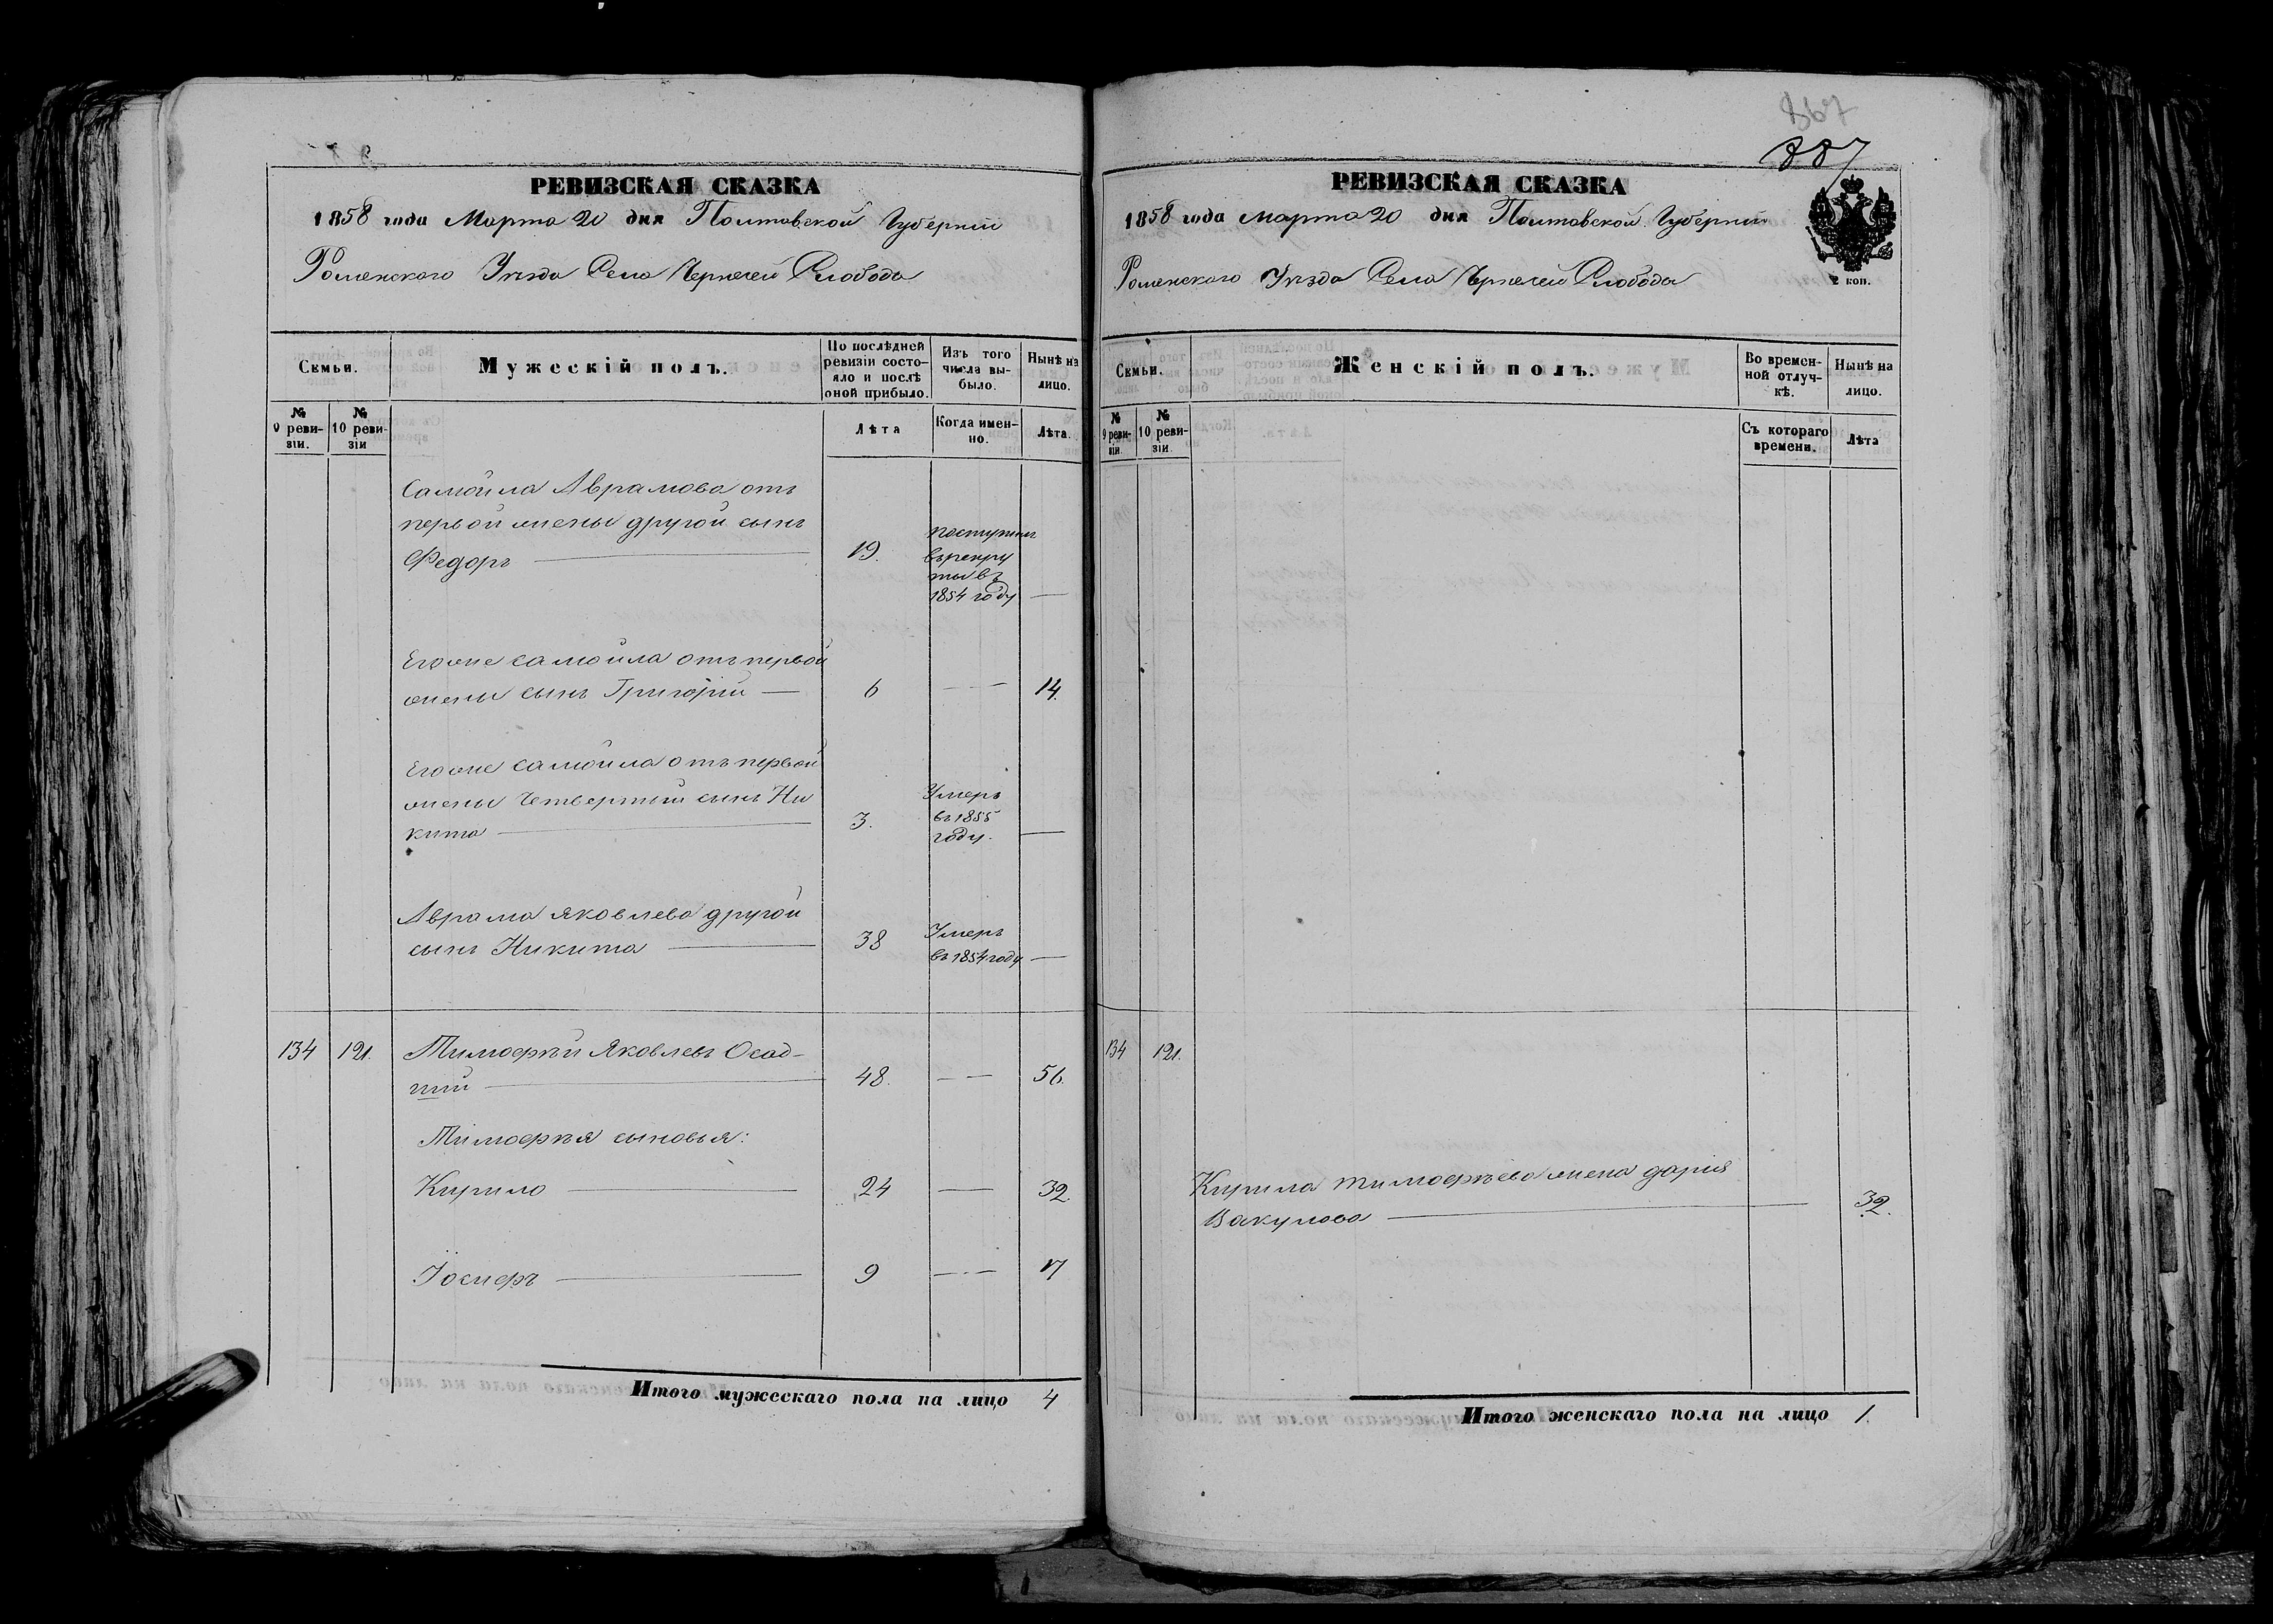 РЕВИЗСКАЯ СКАЗКА
1858 года Марта 20 дня Полтавской Губерніи
Роменского Уезда Села Чернечей Слобода
Семьи.
Мужескій полъ.
По послѣдней ревизіи состояло и послѣ оной прибыло.
Изъ того числа выбыло.
Нынѣ на лицо.
№ 9 ревизіи.
№ 10 ревизіи
Лѣта
Когда именно.
Лѣта.
Самойла Аврамова отъ
первой жены другой сынъ
Федоръ 19.
поступилъ
въ рекру
ты въ
1854 году
Его же самойла отъ первой
жены сынъ Григорій 6 14.
Его же самойла отъ первой
жены Четвертый сынъ Ни
кита 3.
Умеръ
въ 1855
году.
Аврама Яковлева другой
сынъ Никита 38
Умеръ
въ 1854 году
134 121. Тимофѣй Яковлевъ Осад-
чий 48. 56.
Тимофѣя сыновья:
Кирило 24 32.
Іосифъ 9 17
Итого мужескаго пола на лицо 4
867
887
РЕВИЗСКАЯ СКАЗКА
1858 года Марта 20 дня Полтавской Губерніи
Роменского Уезда Села Чернечей Слобода
2 коп.
Семьи.
Женскій полъ.
Во временной отлучкѣ.
Нынѣ на лицо.
№ 9 ревизіи
№ 10 ревизіи.
Съ котораго времени.
Лѣта
134 121.
Кирила Тимофѣева жена дарія
Вакулова 32.
Итого женскаго пола на лицо 1.